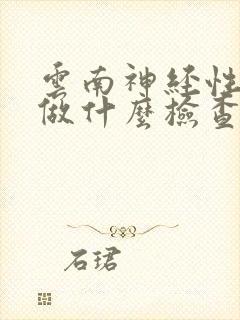 雲南神经性
做什麼檢查
石珺